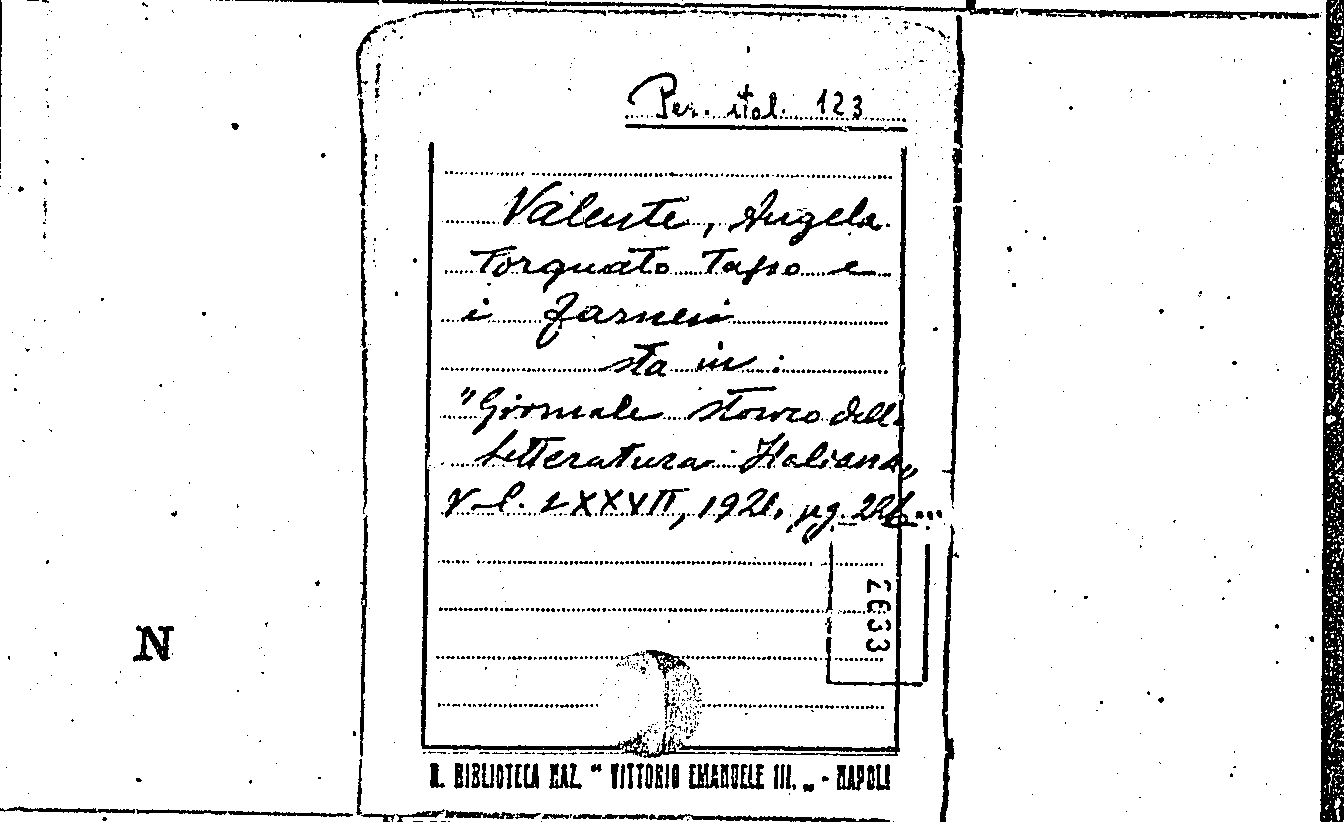 Per. ital. 123
Valente, Angela
Torquato Tasso e
i Farnesi
sta in :
"Giornale storico della
Letteratura Italiana"
Vol. LXXVII, 1921, pg. 226...
2633
N
R. BIBLIOTECA NAZ. " VITTORIO EMANUELE III. „ - NAPOLI